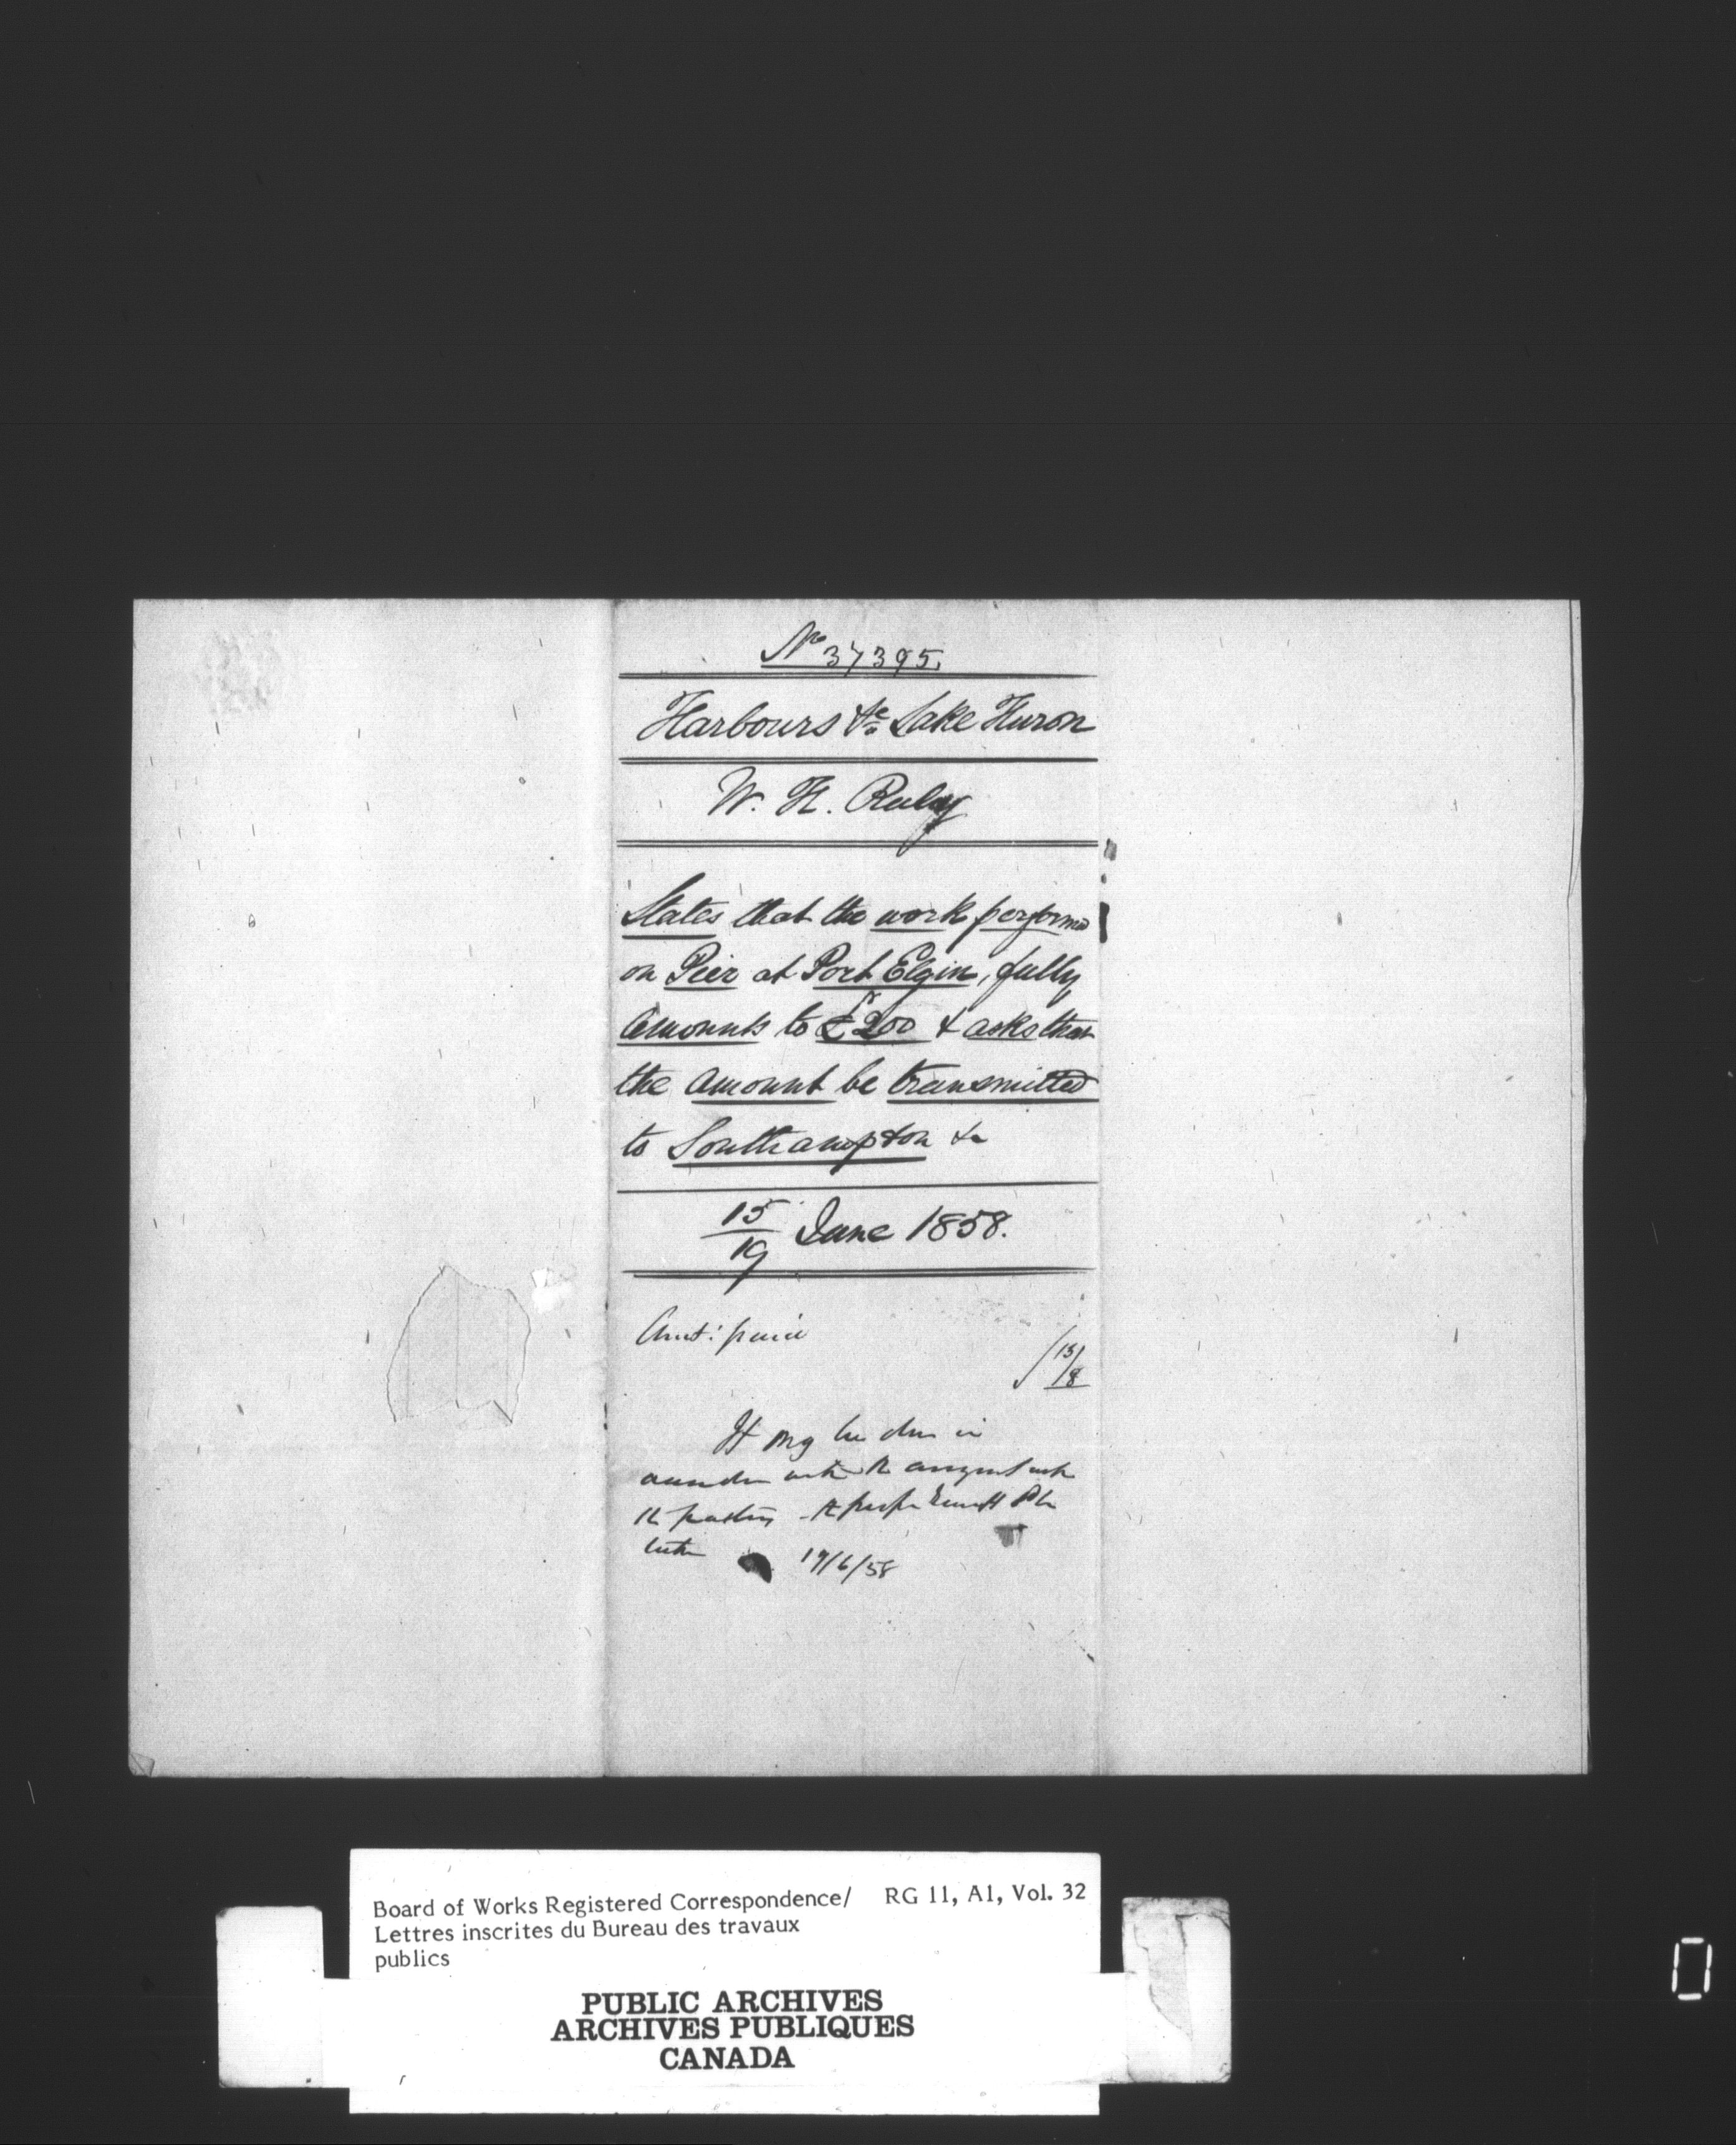 No 37395.
Harbours &c Lake Huron
W. H. Ruby
States that the work performed
on Pier at Port Elgin, fully
amounts to £200 & asks that
the amount be transmitted
to Southampton &c
15/19 June 1858.
Amt: paid
13/8
It may be done in
with the
the parties
letter 19/6/58
Board of Works Registered Correspondence/ RG 11, A1, Vol. 32
Lettres inscrites du Bureau des travaux
publics
PUBLIC ARCHIVES
ARCHIVES PUBLIQUES
CANADA
0